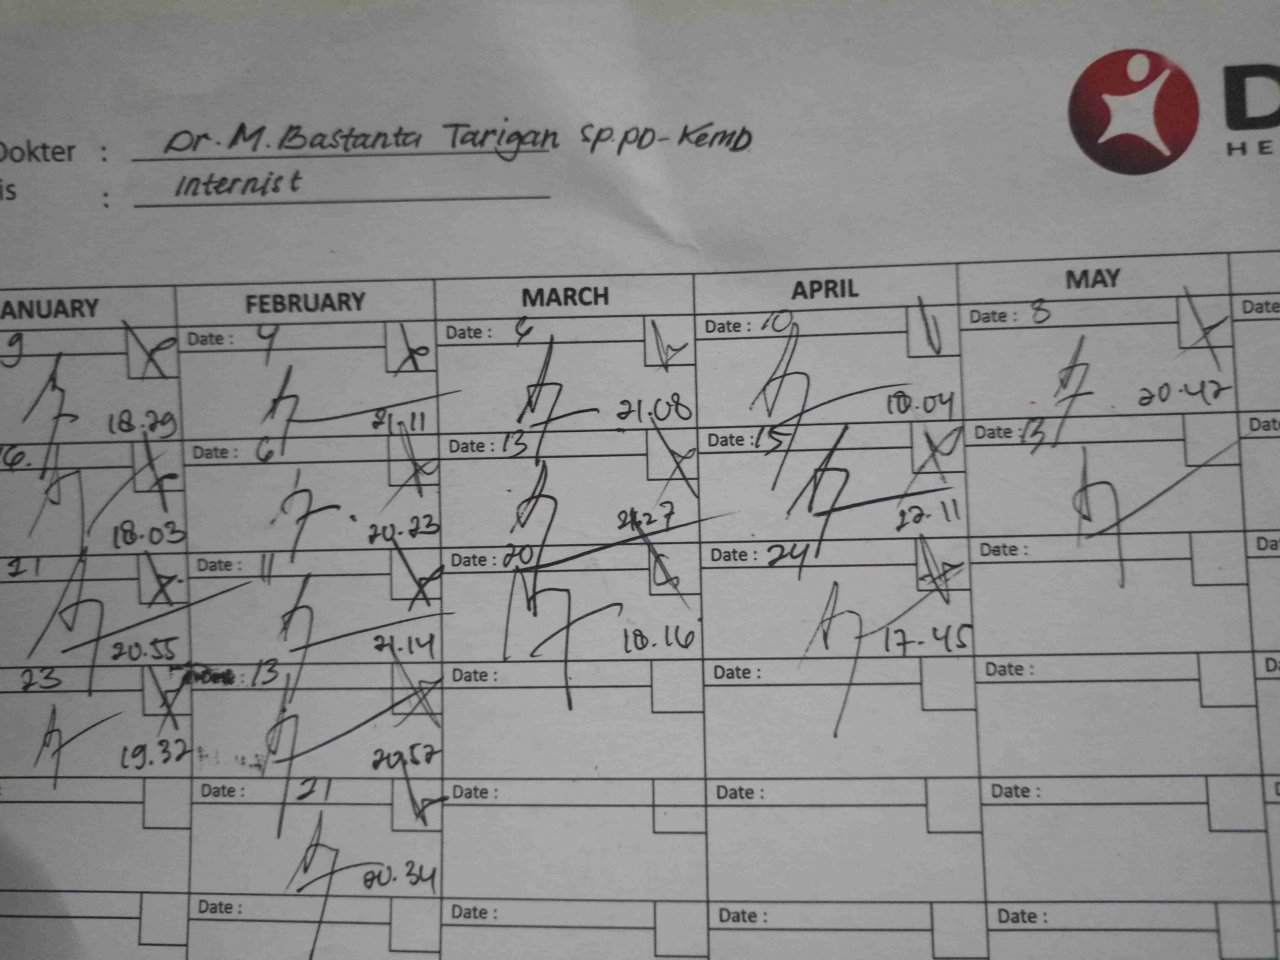 Dokter : Dr. M. Bastanta Tarigan Sp.PD-KEMD
is : Internist
D
HE
ANUARY FEBRUARY MARCH APRIL MAY
9 Date : 4 Date : 6 Date : 10 Date : 8 Date
18.29 21.11 21.08 18.04 20.42
16. Date : 6 Date : 13 Date : 15 Date : 13 Dat
18.03 20.23 21.27 22.11
21 Date : 11 Date : 20 Date : 24 Date : Da
20.55 21.14 18.16 17.45
23 : 13 Date : Date : Date :
19.32 20.52
: Date : 21 Date : Date : Date :
20.34
Date : Date : Date : Date :